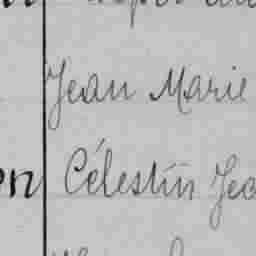 Jean Marie
en Célestin Jea